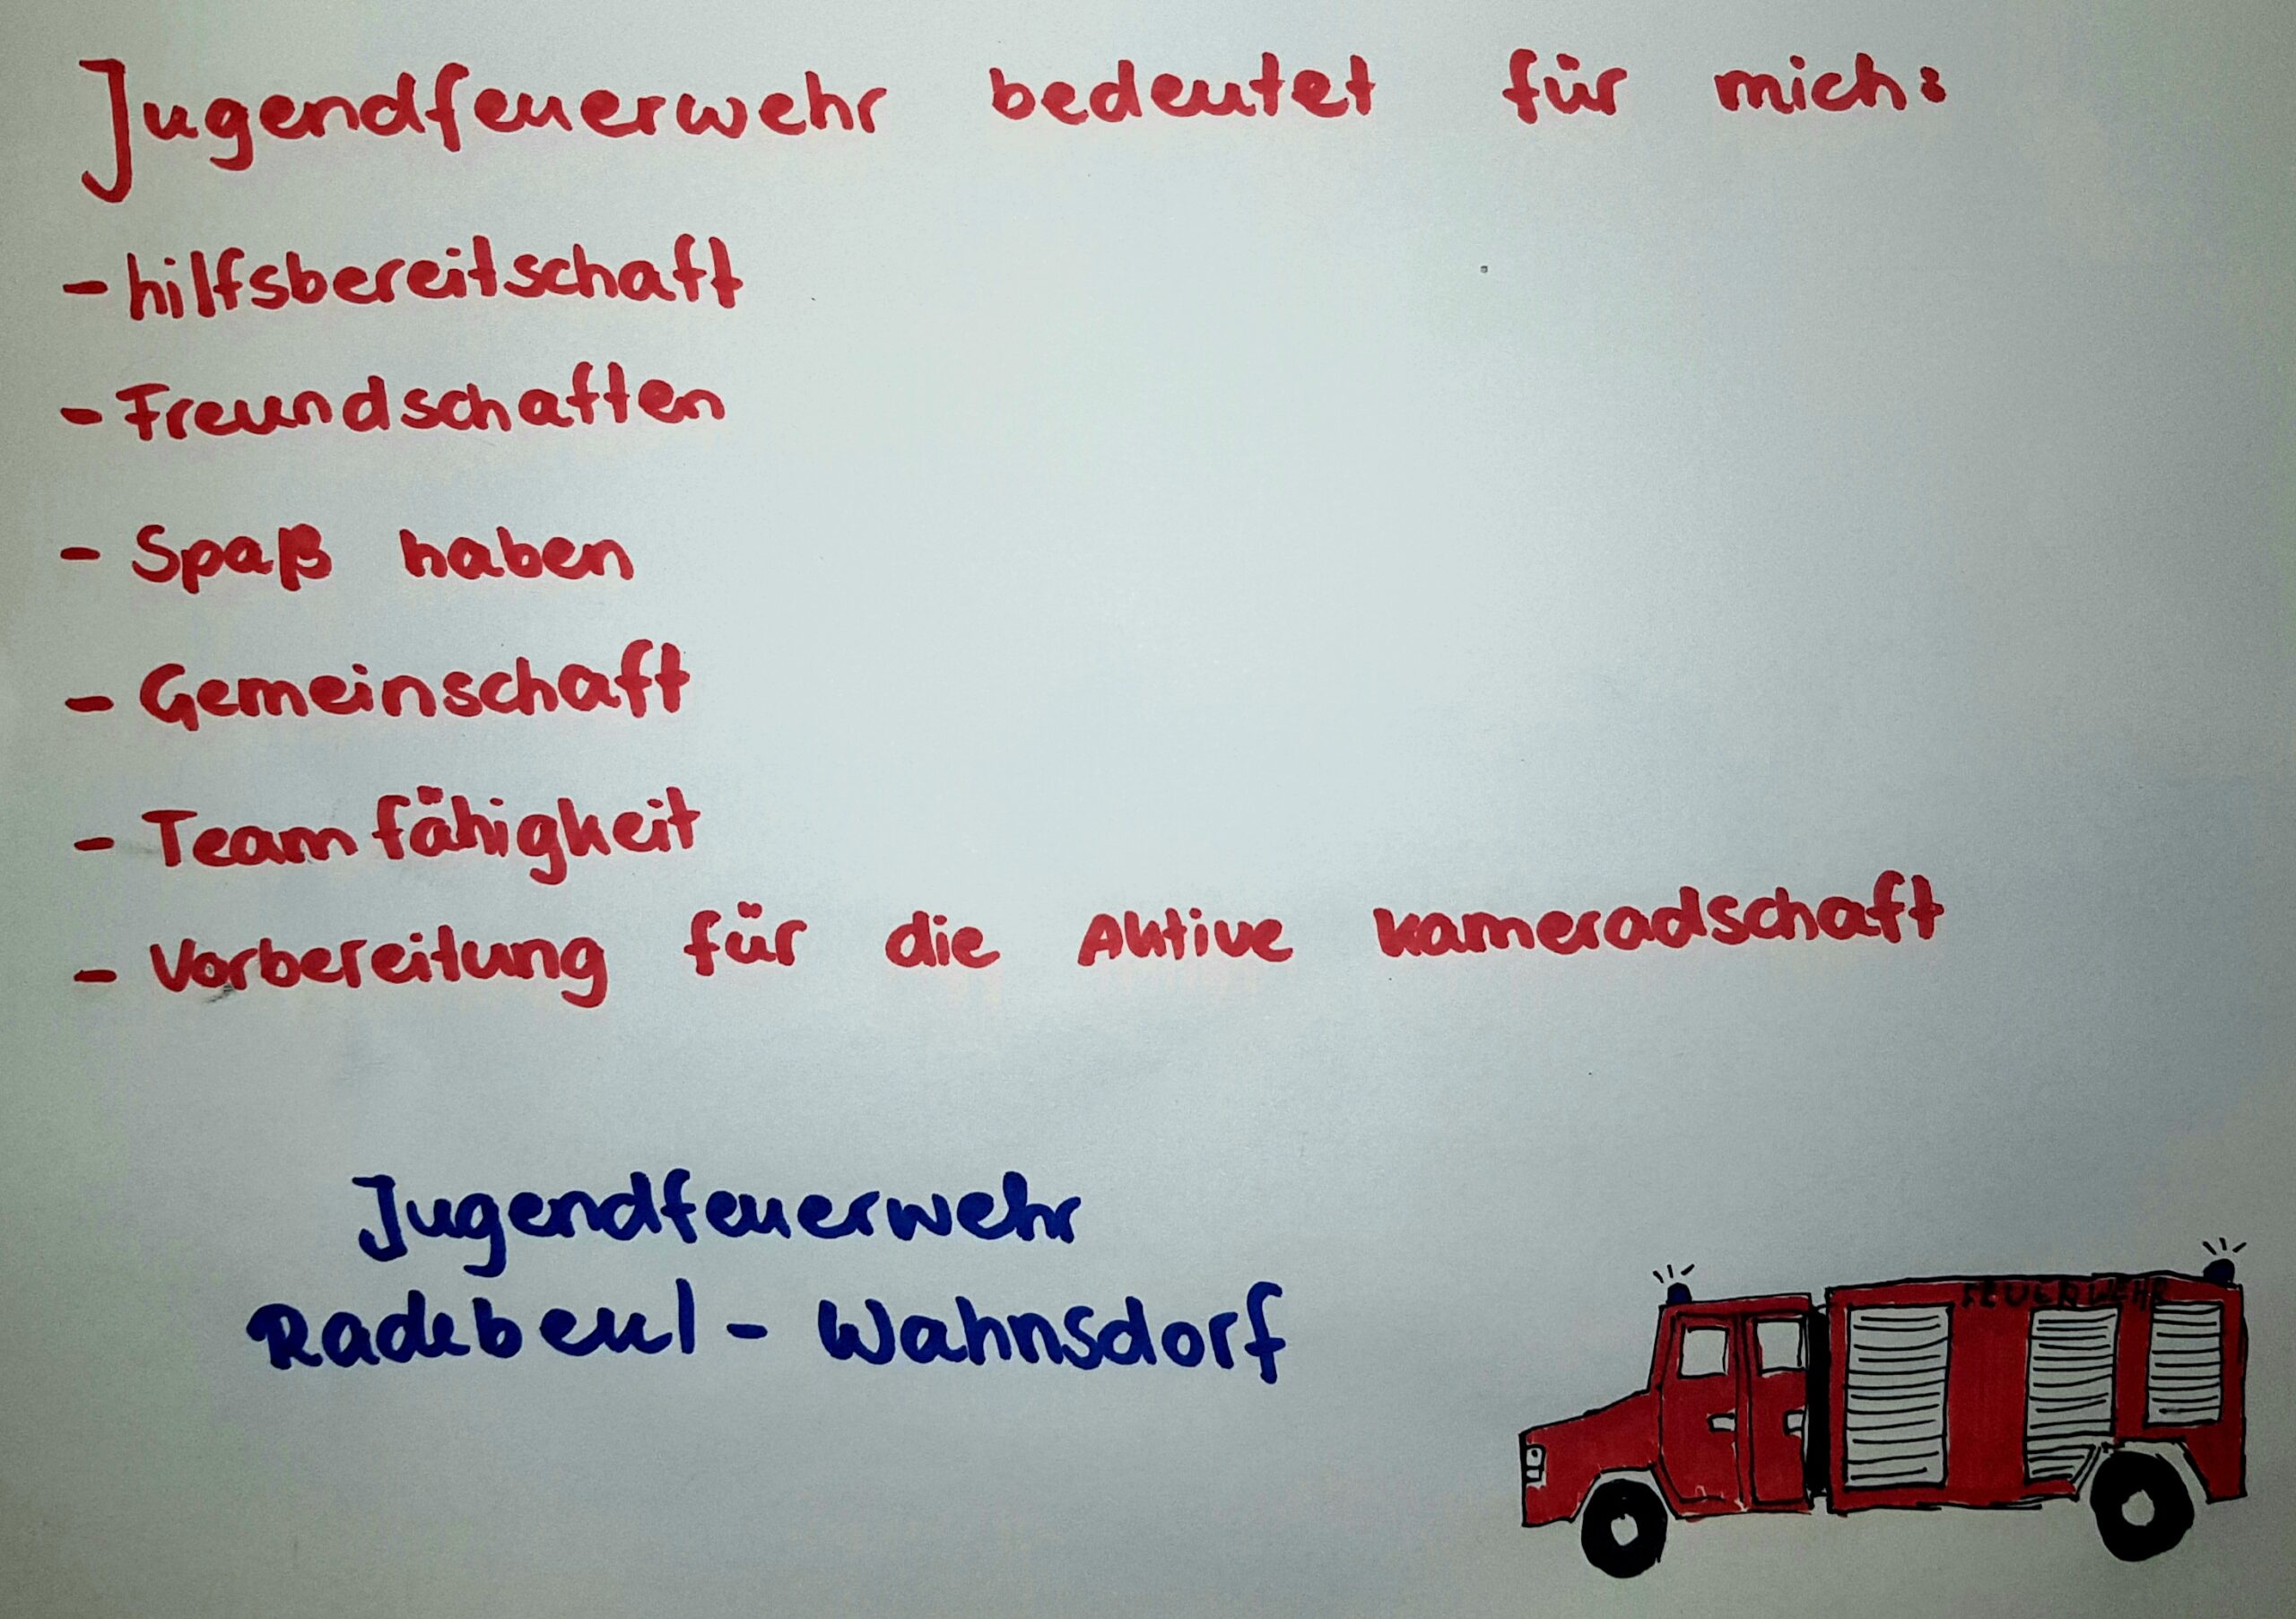 Jugendfeuerwehr bedeutet für mich:
- hilfsbereitschaft
- Freundschaften
- Spaß haben
- Gemeinschaft
- Teamfähigkeit
- Vorbereitung für die Aktive kameradschaft
Jugendfeuerwehr
Radebeul - Wahnsdorf
FEUERWEHR